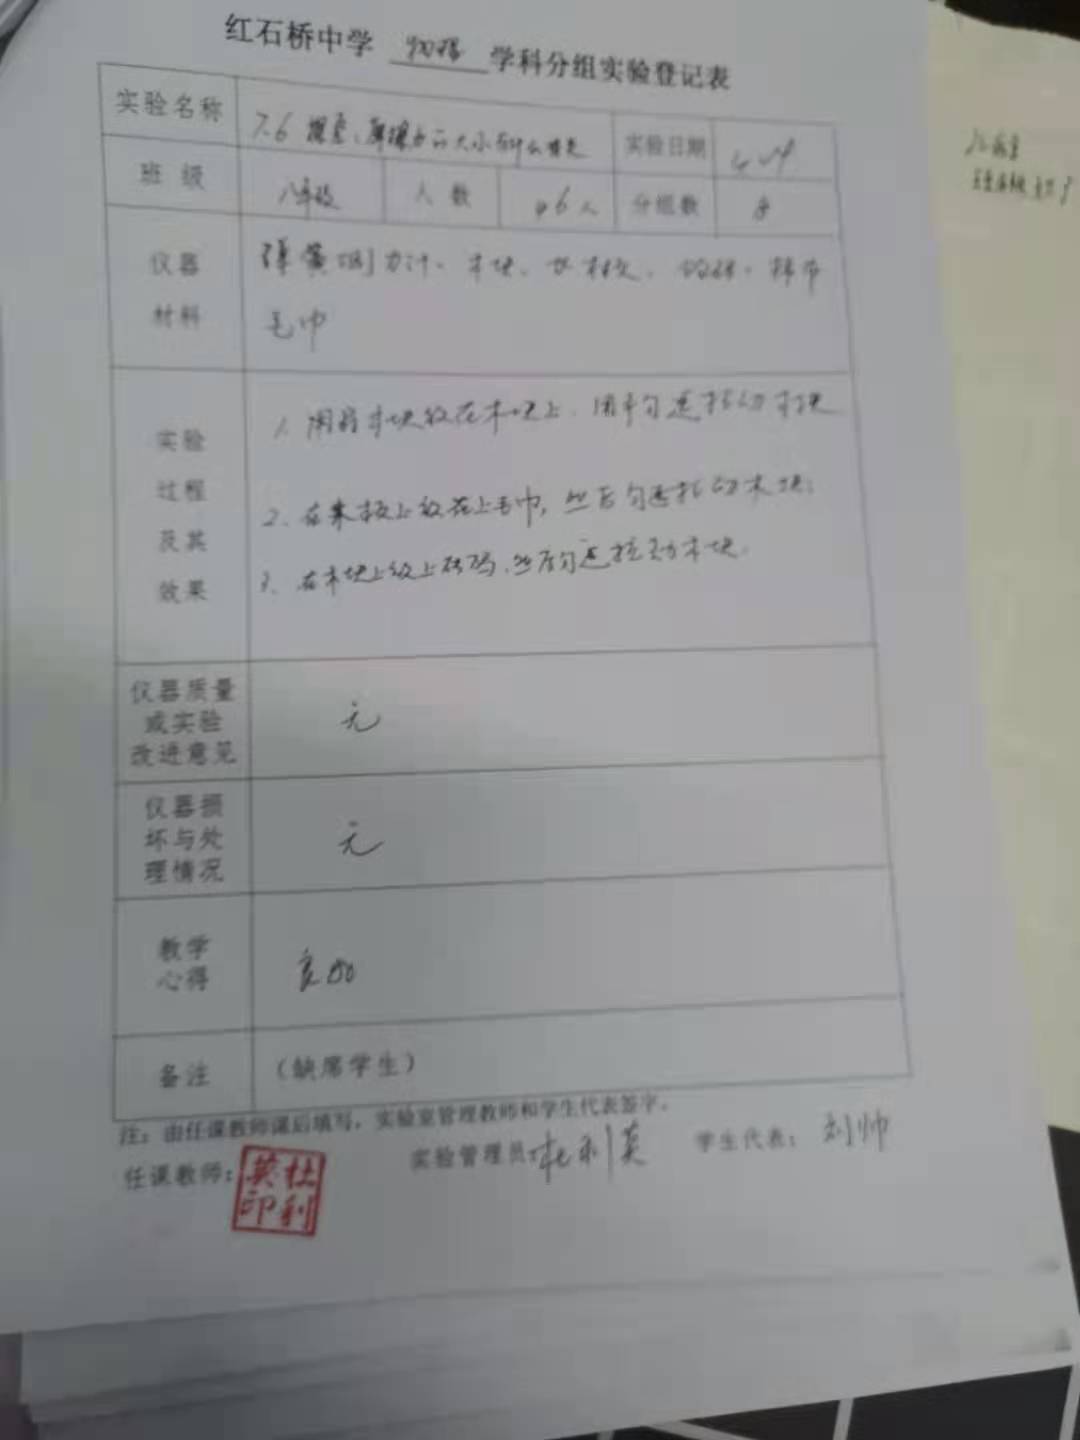 红石桥中学 物理 学科分组实验登记表
实验名称 7.6 探究:摩擦力的大小与什么有关 实验日期
班级 八年级 人数 46人 分组数 8
仪器材料 弹簧测力计、木块、长木板、砝码、棉布
毛巾
实验过程及其效果
1、用将木块放在木板上,用手匀速拉动木块
2、在木板上放上毛巾,然后匀速拉动木块;
3、在木块上放上砝码,然后匀速拉动木块.
仪器质量或实验改进意见 无
仪器损坏与处理情况 无
教学心得 良好
备注 (缺席学生)
注:由任课教师课后填写,实验室管理教师和学生代表签字。
任课教师: 杜利英印 实验管理员 杜利英 学生代表: 刘帅